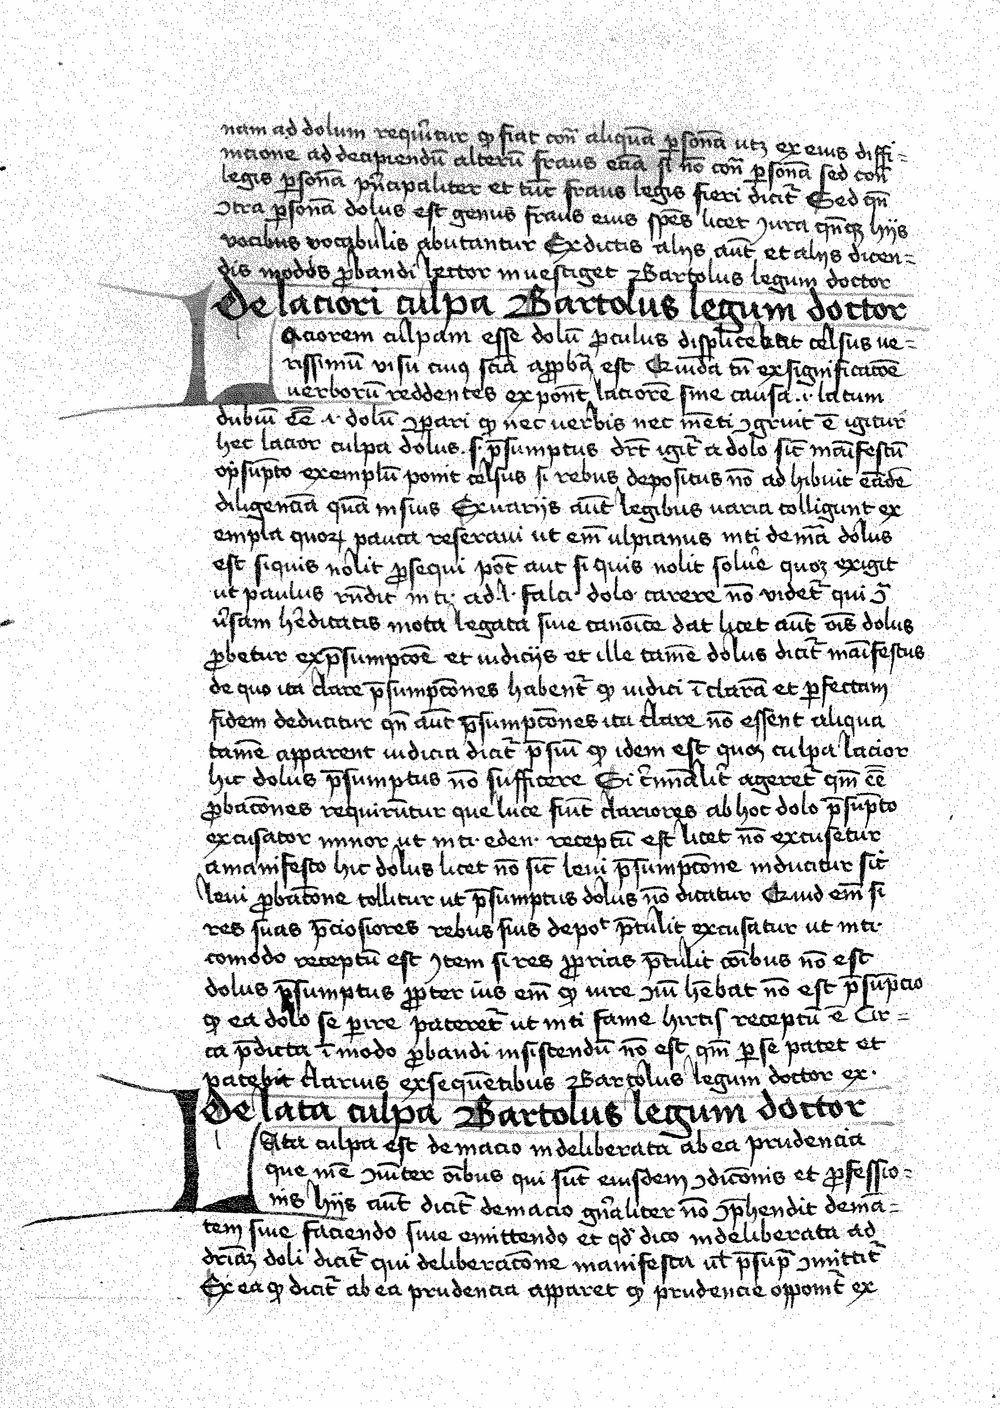 nam ad dolum requiritur qp fiat con̄ aliquā ꝑsonā utꝫ ex eius diffi=
nicione ad decipiendū alterū fraus eciā si nō con̄ ꝑsonā sed con̄
legis ꝑsonā pͥncipaliter et tūc fraus legis fieri dicit̄ Sed qn̄
ꝯtra ꝑsonā dolus est genus fraus eius spēs licet iura qn̄qꝫ hijs
vocibus vocabulis abutantur Ex dictis alijs aūt et alijs dicen=
dis modis ꝓbandi lector investiget Bartolus legum doctor
De laciori culpa Bartolus legum doctor
Laciorem culpam esse dolū ꝓculus displicebat celsus ve=
rissimū visū cuius sn̄ia apꝓbāt est Quidā tn̄ ex significacōe
verborū reddentes exponūt laciorē sine causa .i. latum
dubiū eē .i. dolū ꝯpari qp nec verbis nec mēti ꝯgruit ē igitur
hec lacior culpa dolus .s. p̄sumptus drt̄ igit̄ a dolo sic̄ manifestū
op̄sūpto exemplū ponit celsus si rebus depositus nō adhibuit eādē
diligenciā quā in suis Ex varijs aūt legibus varia colligunt ex
empla quoꝝ pauca reseravi ut em̄ ulpianus in ti de mā dolus
est siquis nolit ꝓsequi pot̄ aut si quis nolit solve quoꝫ exigit
ut paulus rn̄dit in ti· ad·l· falci· dolo carere nō videt̄ qui ꝯ̄
ūsam hēreditatis mota legata sine canōice dat licet aūt oīs dolus
ꝓbetur ex p̄sumpcōe et iudicijs et ille tamē dolus dicit̄ manifestus
de quo ita clare p̄sumpcōnes habent̄ qp iudici ī clarā et ꝑfectam
fidem deducitur qn̄ aūt p̄sumpcōnes ita clare nō essent aliqua
tamē apparent iudicia dicit̄ p̄sūi qp idem est quoꝫ culpa lacior
hic dolus p̄sumptus nō sufficere Si cͥminalit̄ageret̄ qm̄ eē
ꝓbacōnes requirūtur que luce fiūt clariores ab hoc dolo p̄sūpto
excusator minor ut in ti· eden· receptū est licet nō excusetur
a manifesto hic dolus licet nō sic̄ levi p̄sumpcōne inducitur sic̄
levi ꝓbacōne tollitur ut p̄sumptus dolus nō dicatur Quid em̄ si
res suas p̄ciosiores rebus suis depoᵗ p̄tulit excusatur ut in ti·
comodo receptū est Item si res ꝓprias p̄tulit cōibus nō est
dolus p̄sumptus ꝓpter ius em̄ qp iure ꝯiū hēbat nō est p̄sūpcio
qp ea dolo se ꝑire pateret̄ ut in ti fame hirtis receptū ē Cir=
ca p̄dicta ī modo ꝓbandi insistendū nō est qm̄ ꝑ se patet et
patebit clarius ex sequētibus Bartolus legum doctor ex·
De lata culpa Bartolus legum doctor
Lata culpa est demacio indeliberata ab ea prudencia
que inē ꝯiter oībus qui sūt eiusdem ꝯdicōnis et ꝓfessio=
nis hijs aūt dicit̄ demacio gn̄aliter nō ꝯp̄hendit demā=
tem sive faciendo sive emittendo et qd̄ dico indeliberata ad
driāꝫ doli dicit̄ qui deliberacōne manifesta ul̄ p̄sūp̄ ꝯmittit̄
Ex ea qp dicit̄ ab ea prudencia apparet qp prudencie opponit̄ ex